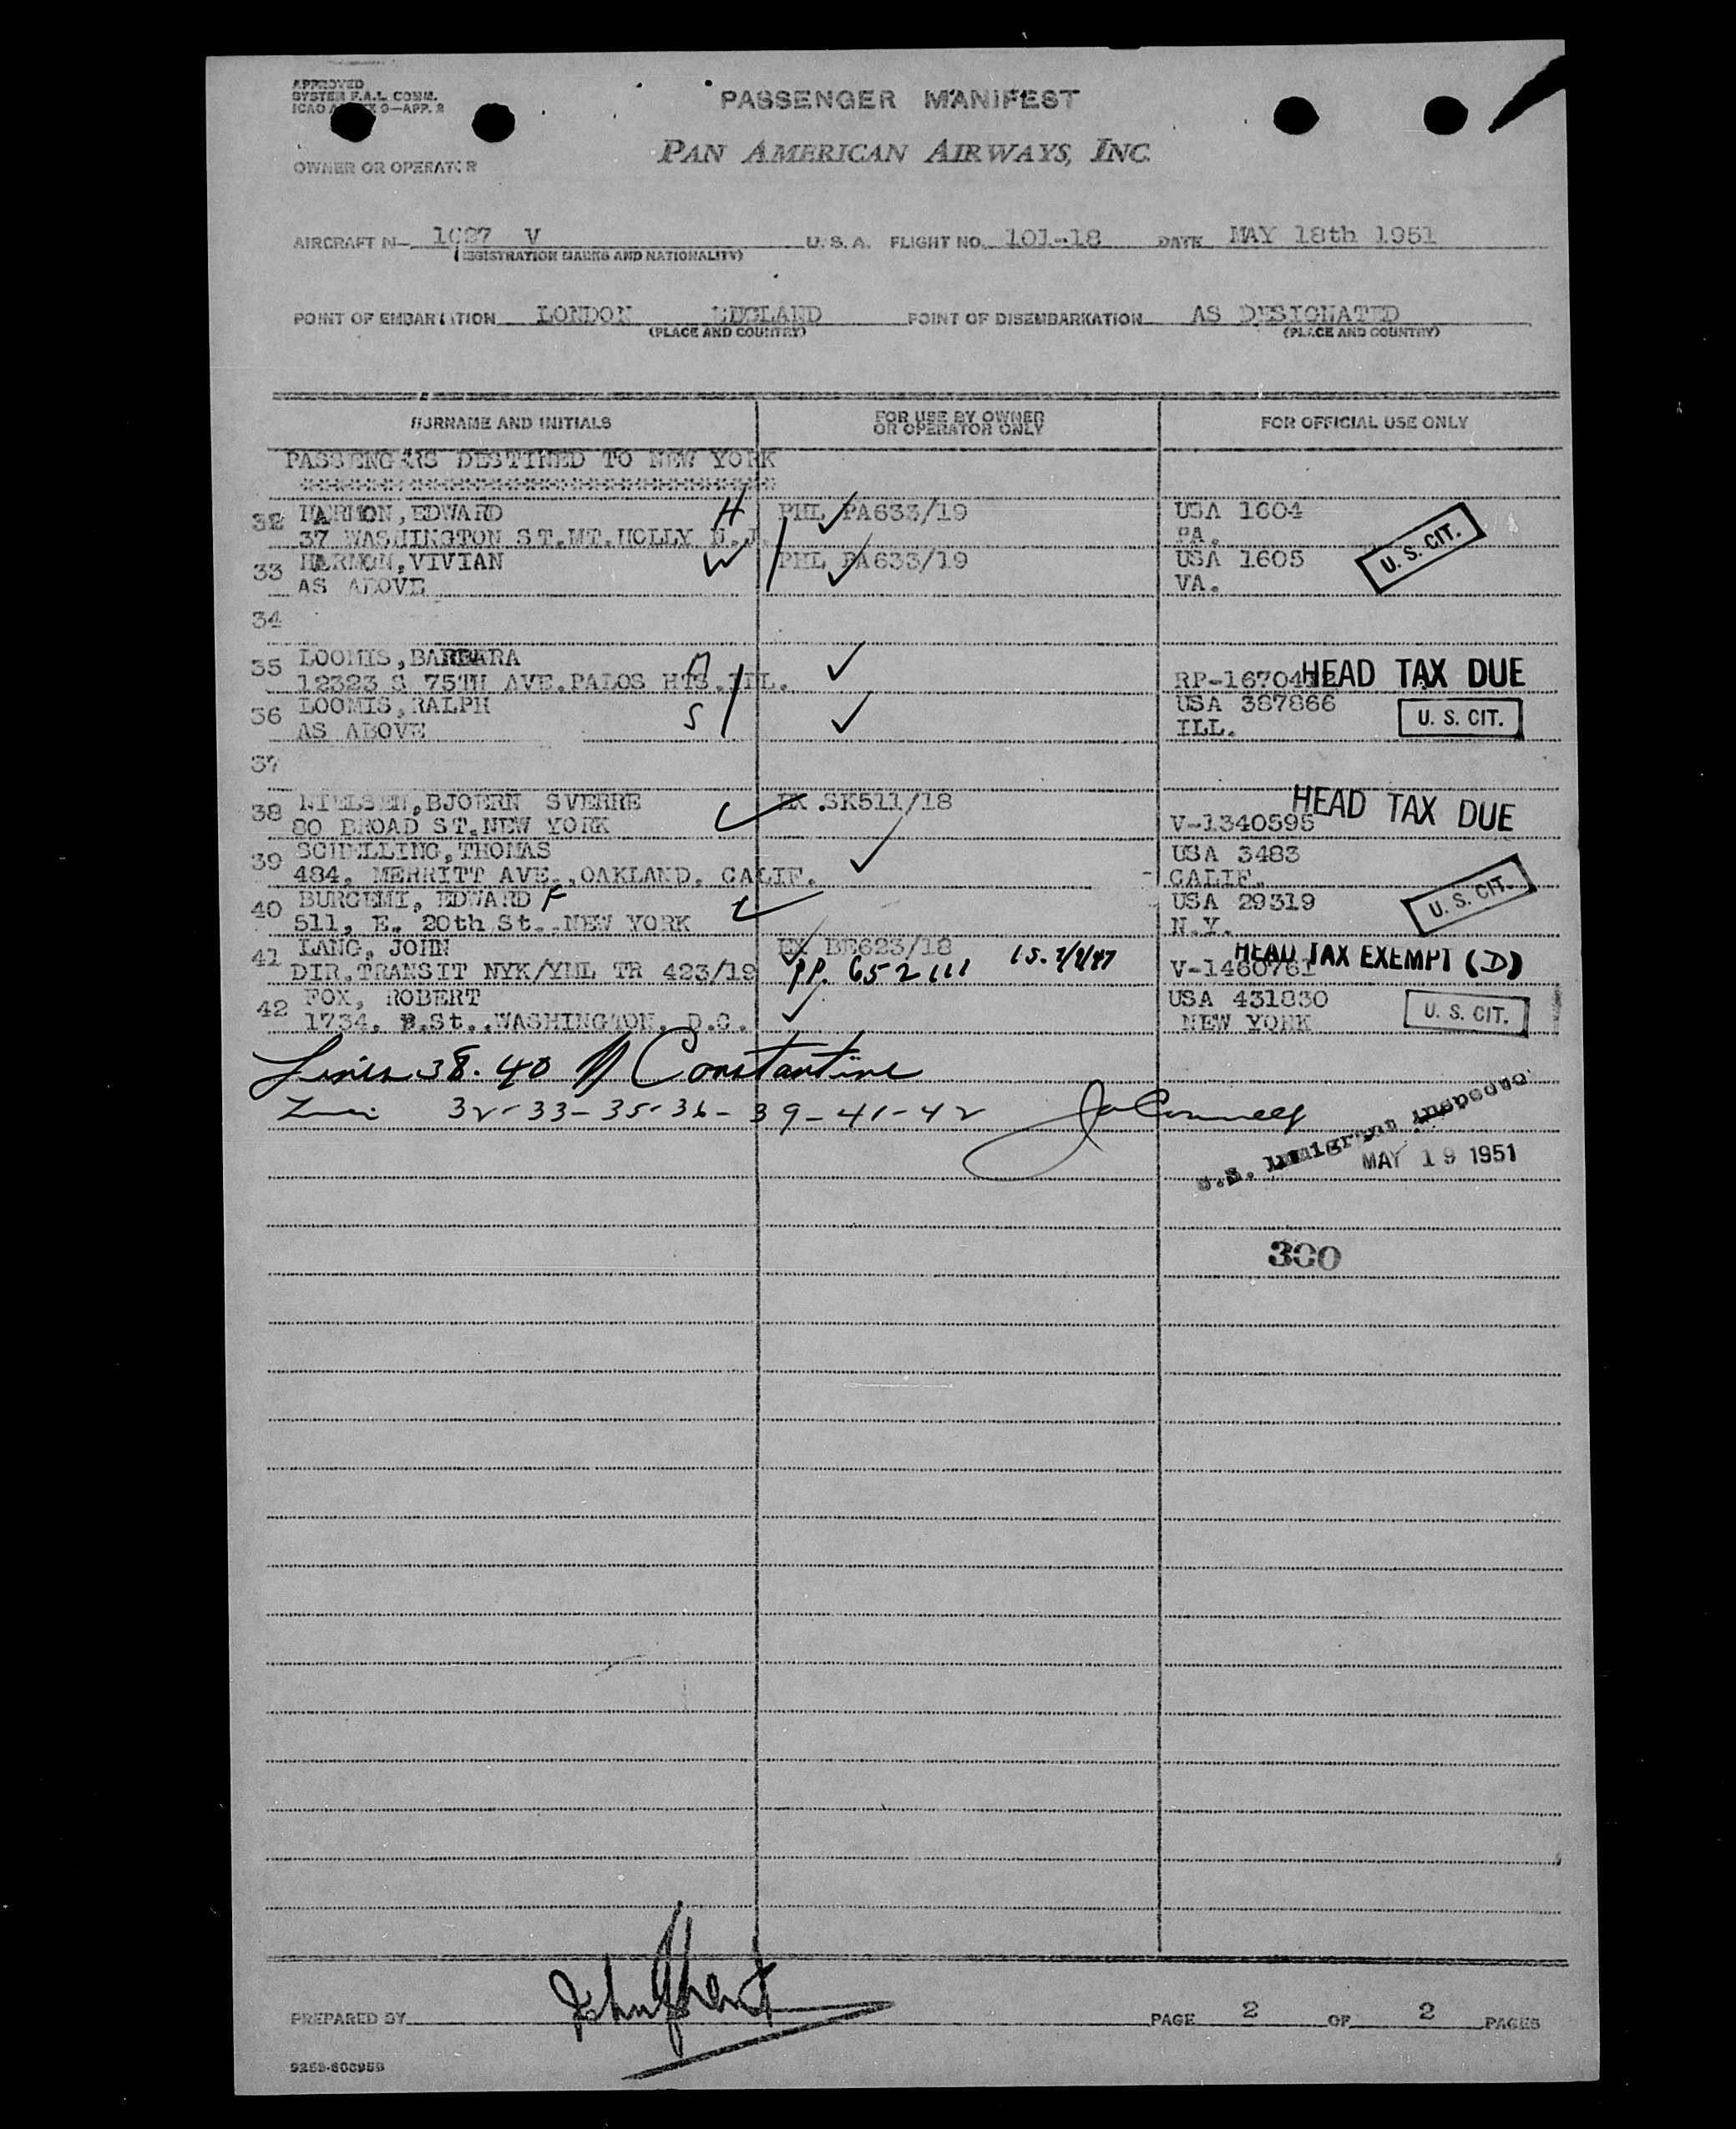 APPROVED
SYSTEM F.A.L. COMM.
ICAO 9—APP. 2
PASSENGER MANIFEST
PAN AMERICAN AIRWAYS, INC.
OWNER OR OPERATOR
AIRCRAFT N— 1027 V U. S. A. FLIGHT NO. 101-18 DATE MAY 18th 1951
(REGISTRATION MARKS AND NATIONALITY)
POINT OF EMBARKATION LONDON ENGLAND POINT OF DISEMBARKATION AS DESIGNATED
(PLACE AND COUNTRY) (PLACE AND COUNTRY)
SURNAME AND INITIALS FOR USE BY OWNER OR OPERATOR ONLY FOR OFFICIAL USE ONLY
PASSENGERS DESTINED TO NEW YORK
32 HARMON, EDWARD H PHL PA633/19 USA 1604
37 WASHINGTON ST.MT.HOLLY N.J. PA.
33 HARMON, VIVIAN W PHL PA633/19 USA 1605 U. S. CIT.
AS ABOVE VA.
34
35 LOOMIS, BARBARA
12323 S 75TH AVE.PALOS HTS.ILL. RP-16704 HEAD TAX DUE
36 LOOMIS, RALPH S USA 387866 U. S. CIT.
AS ABOVE ILL.
37
38 NIELSEN, BJOERN SVERRE EX .SK511/18 HEAD TAX DUE
80 BROAD ST.NEW YORK V-1340595
39 SCHELLING, THOMAS USA 3483
484, MERRITT AVE.,OAKLAND. CALIF. CALIF.
40 EDWARD F USA 29319 U. S. CIT.
511, E. 20th St..NEW YORK N.Y.
41 LANG, JOHN EX BE623/18 HEAD TAX EXEMPT (D)
DIR.TRANSIT NYK/YML TR 423/19 PP. 652111 V-1460761
42 FOX, ROBERT USA 431830 U. S. CIT.
1734, St..WASHINGTON. D.C. NEW YORK
Lines 38. 40 Constantine
32-33-35-36-39-41-42
U.S. Immigration Inspector
MAY 19 1951
300
PREPARED BY PAGE 2 OF 2 PAGES